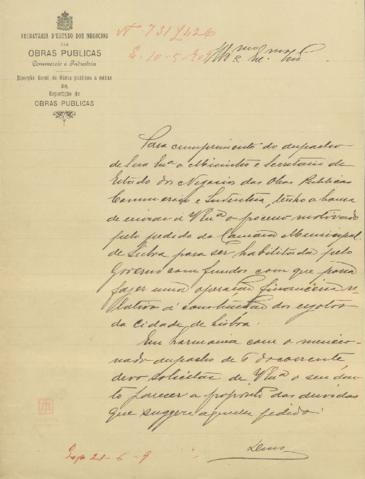 SECRETARIA D'ESTADO DOS NEGOCIOS
DAS
OBRAS PUBLICAS
Commercio e Industria
Direcção Geral de Obras Publicas e Minas
Repartição de
OBRAS PUBLICAS
Nº 731
Ill.mo e Ex.mo Snr.
Para cumprimento do despacho
de Sua Exª o Ministro e Secretario de
Estado dos Negocios das Obras Publicas
Commercio e Industria, tenho a honra
de enviar a V. Exª o processo motivado
pelo pedido da Camara Municipal
de Lisboa para ser habilitada pelo
Governo com fundos com que possa
fazer uma operação financeira re-
lativa á construcção dos esgotos
da Cidade de Lisboa.
Em harmonia com o mencio-
nado despacho de 6 do corrente
devo solicitar de V. Exª o seu dou-
to parecer a proposito das duvidas
que suggere aquelle pedido.